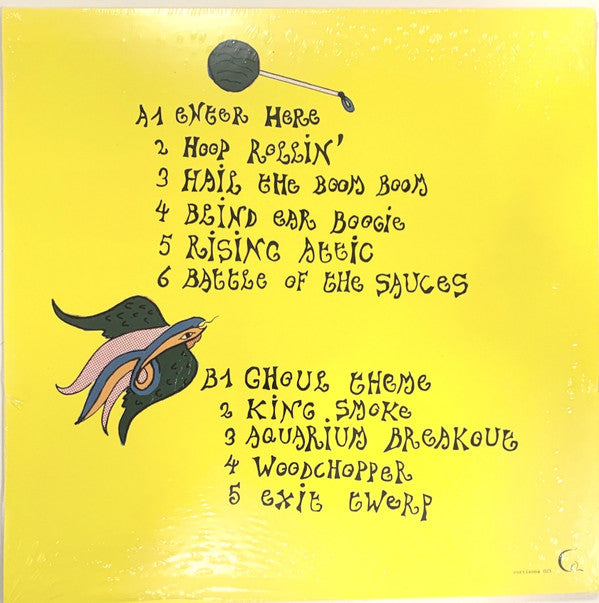 A1 ENTER HERE
2 HOOP ROLLIN'
3 HAIL THE BOOM BOOM
4 BLIND EAR BOOGIE
5 RISING ATTIC
6 BATTLE OF THE SAUCES
B1 GHOUL THEME
2 KING SMOKE
3 AQUARIUM BREAKOUT
4 WOODCHOPPER
5 EXIT TWERP